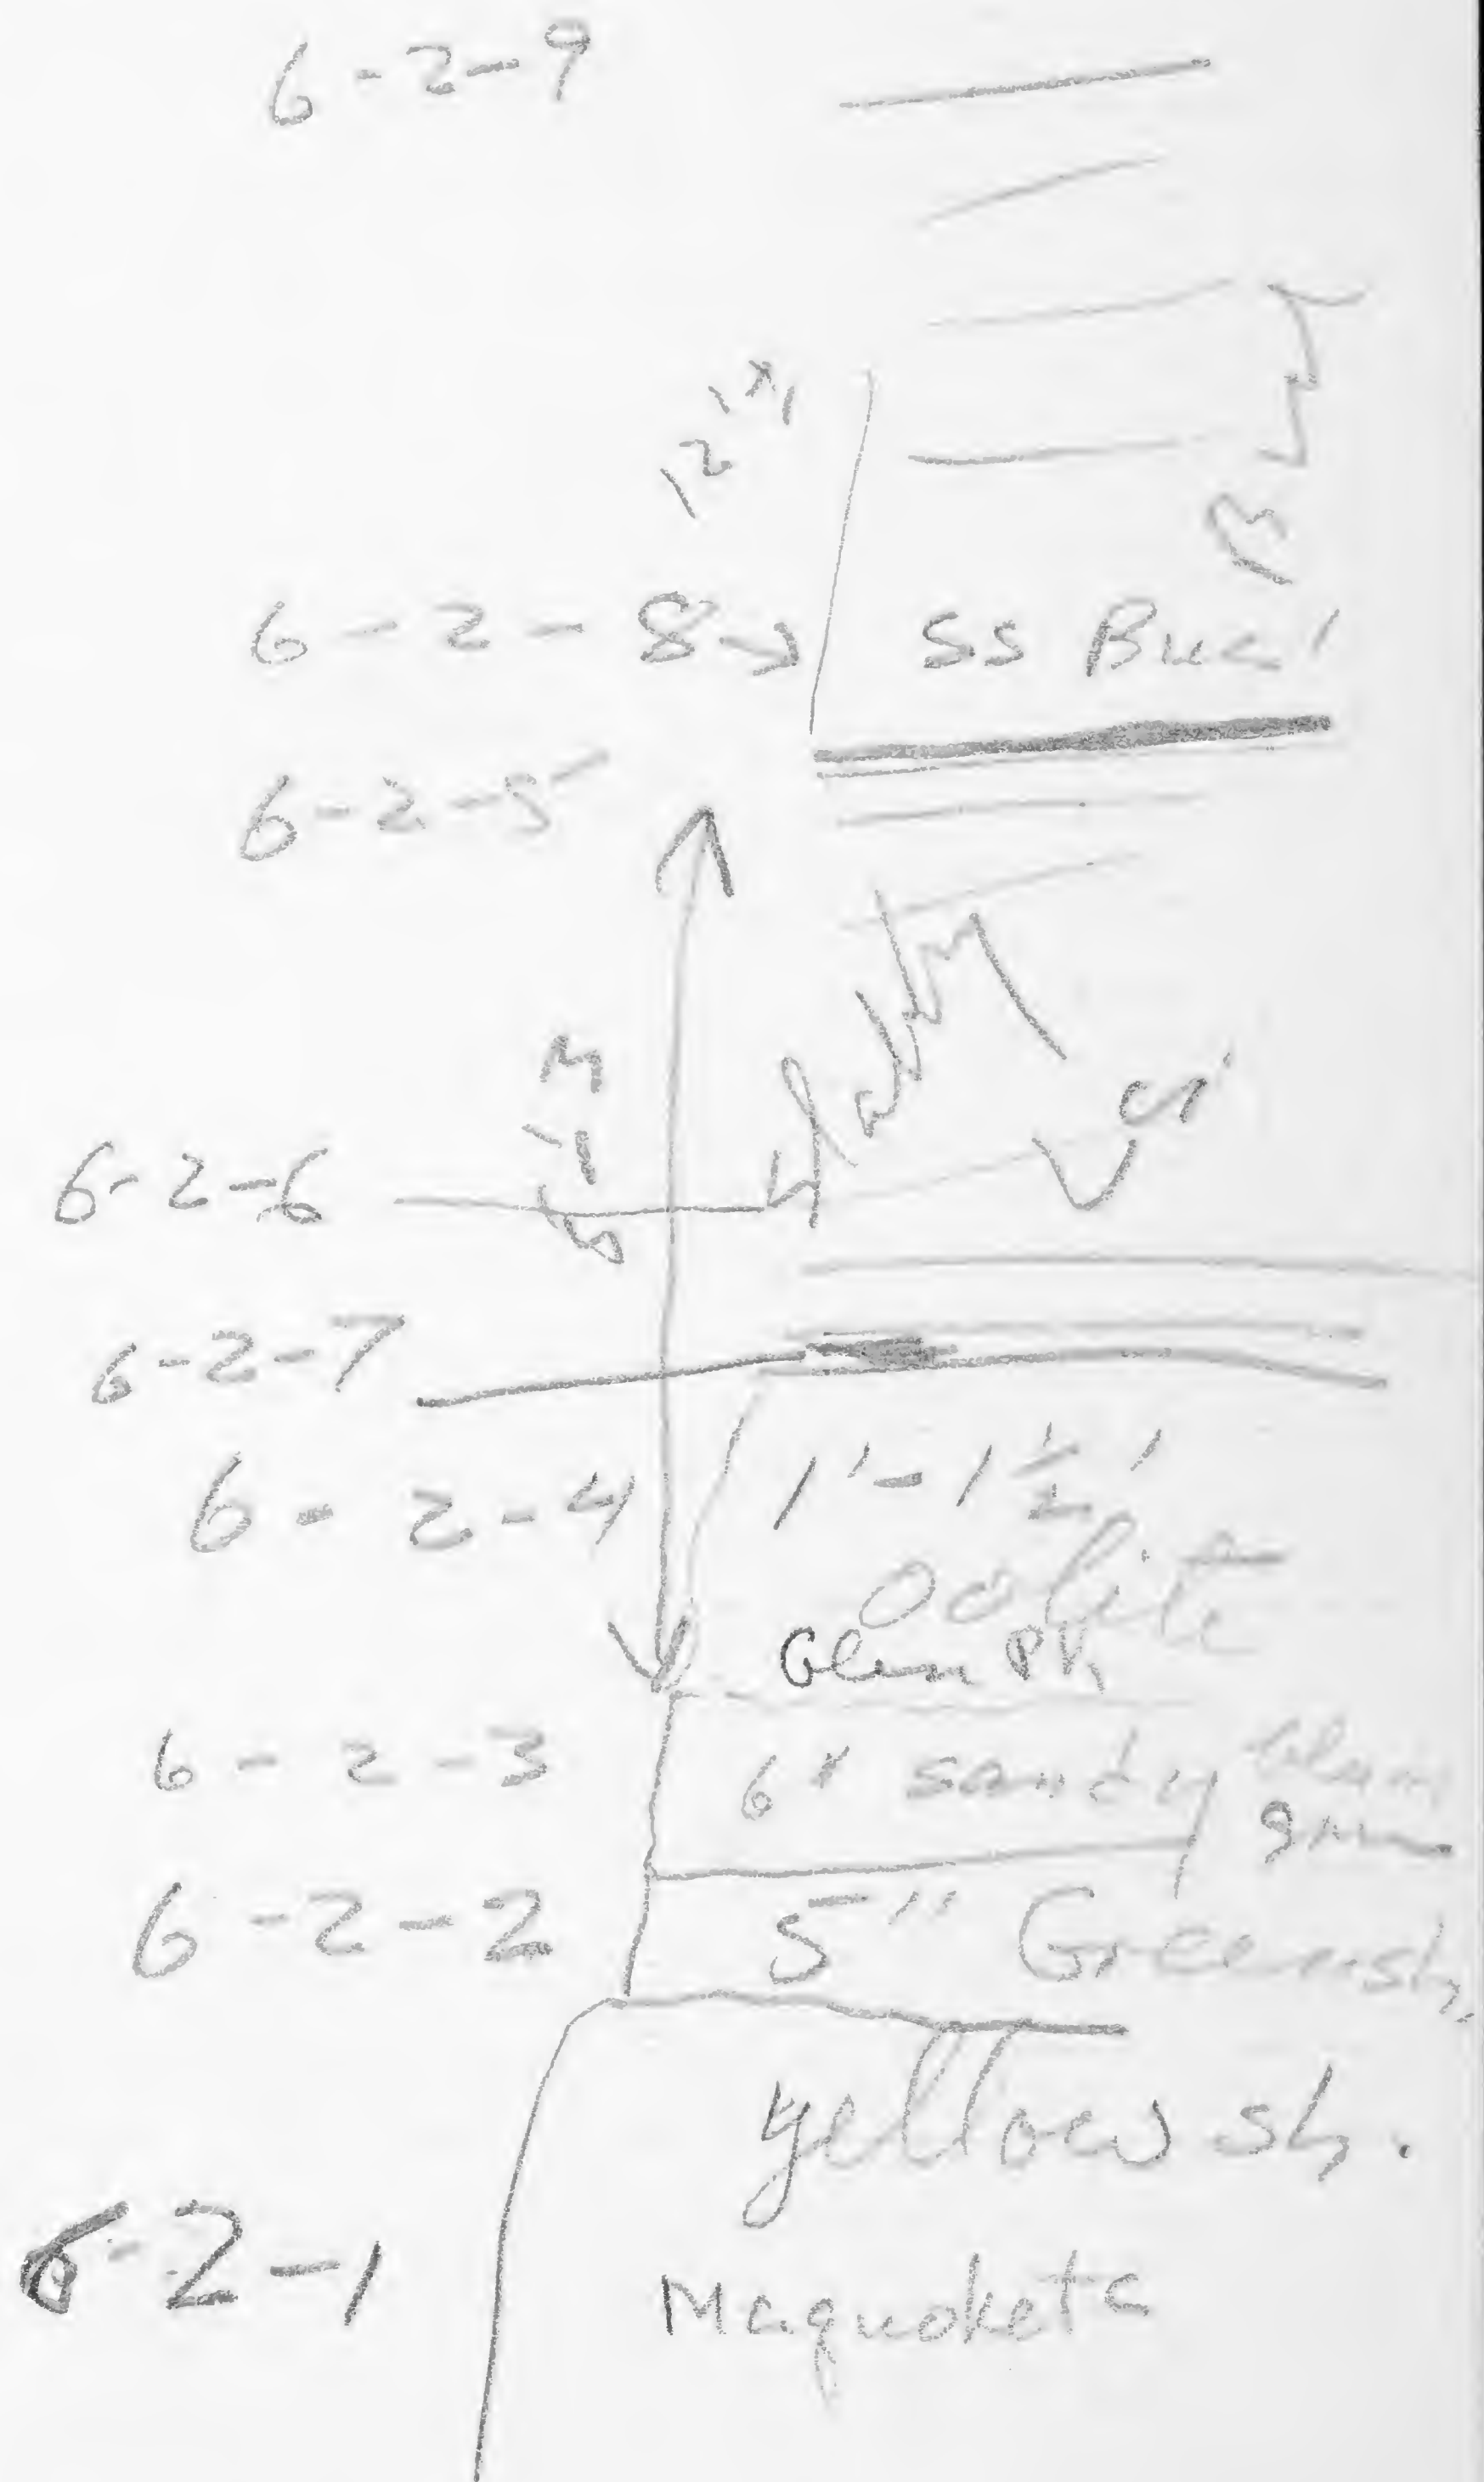 6-2-9
6-2-8 → SS Bucs'
6-2-5
Platty
6-2-6
6-2-7
6-2-4 1'-1 1/2'
oolite
Glen Pk
6-2-3 6" sandy Glen
6-2-2 5" Green sh.
yellow sh.
6-2-1 Maquoketa